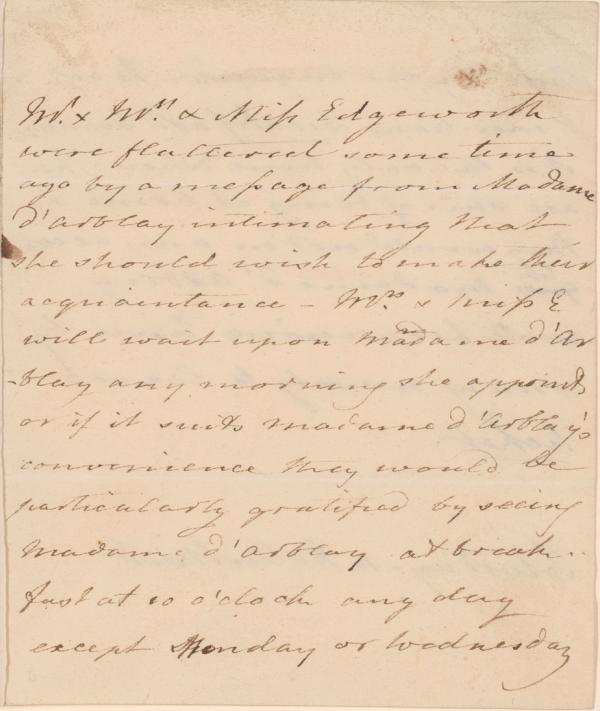 Mr. & Mrs. & Miss Edgeworth
were flattered some time
ago by a message from Madame
d'arblay intimating that
she should wish to make their
acquaintance – Mrs. & Miss E
will wait upon Madame d'Ar
-blay any morning she appoints
or if it suits madame d'Arblay's
convenience they would be
particularly gratified by seeing
Madame d'arblay at break-
fast at 10 o'clock any day
except Monday or Wednesday